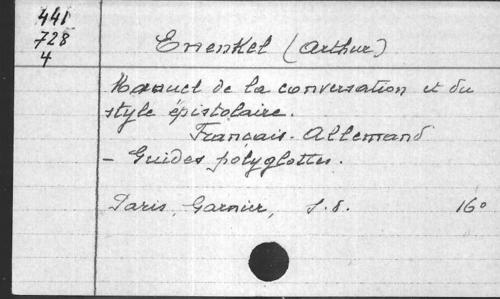 441
728
4
Enenkel (Arthur)
Manuel de la conversation et du
style épistolaire.
Français-Allemand
- Guides polyglottes.
Paris, Garnier, s.d. 16°